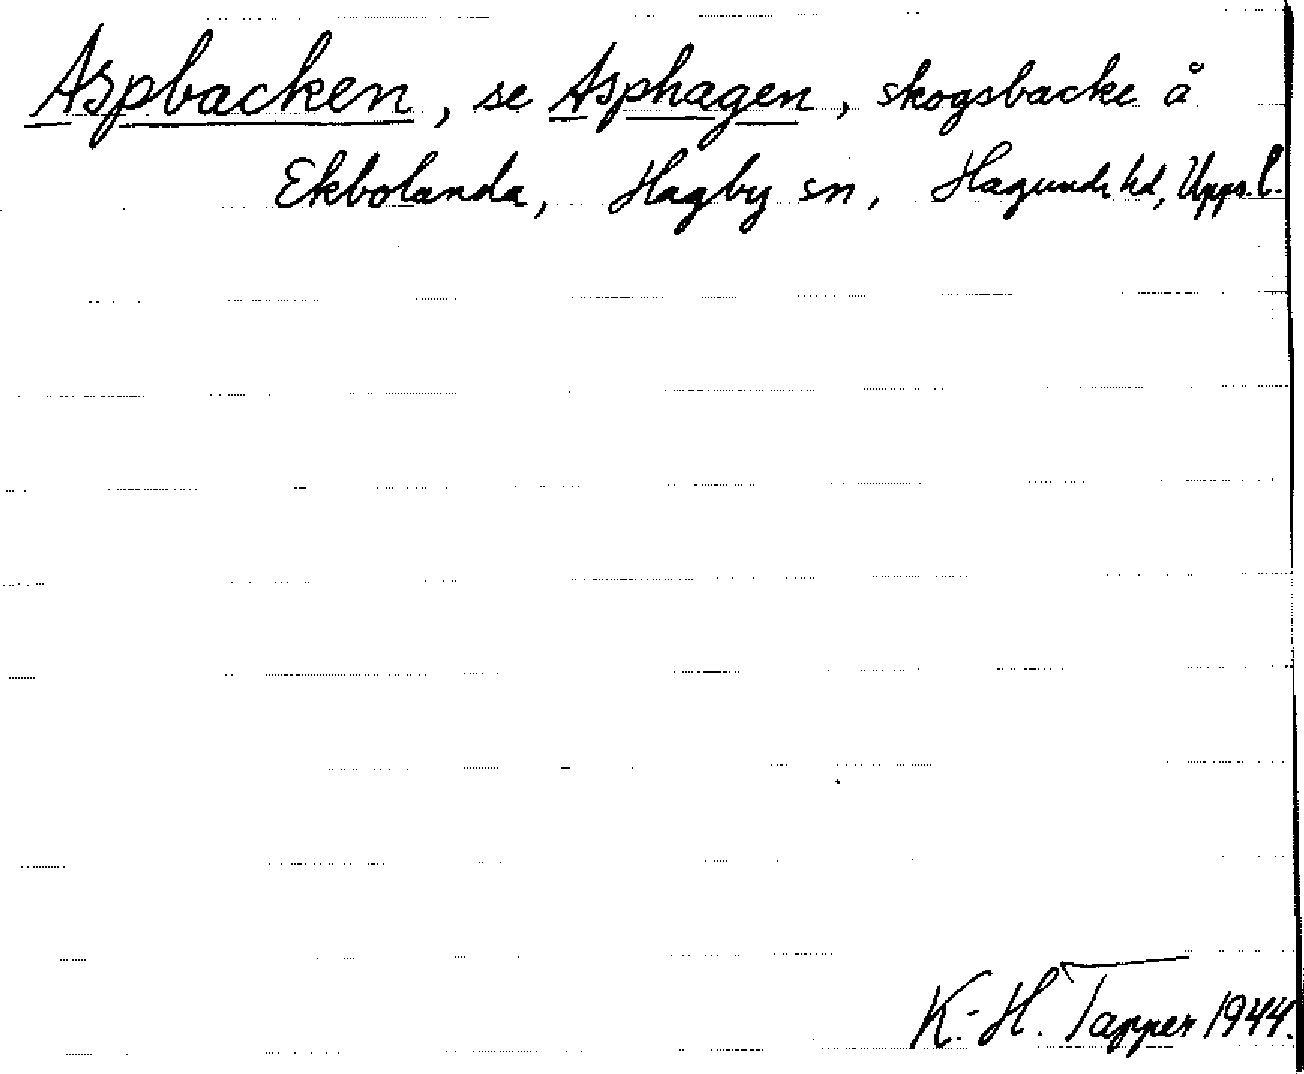 Aspbacken, se Asphagen, skogsbacke å
Ekbolanda, Hagby sn, Hagunda hd, Upps.l.
K.-H. Tapper 1944.